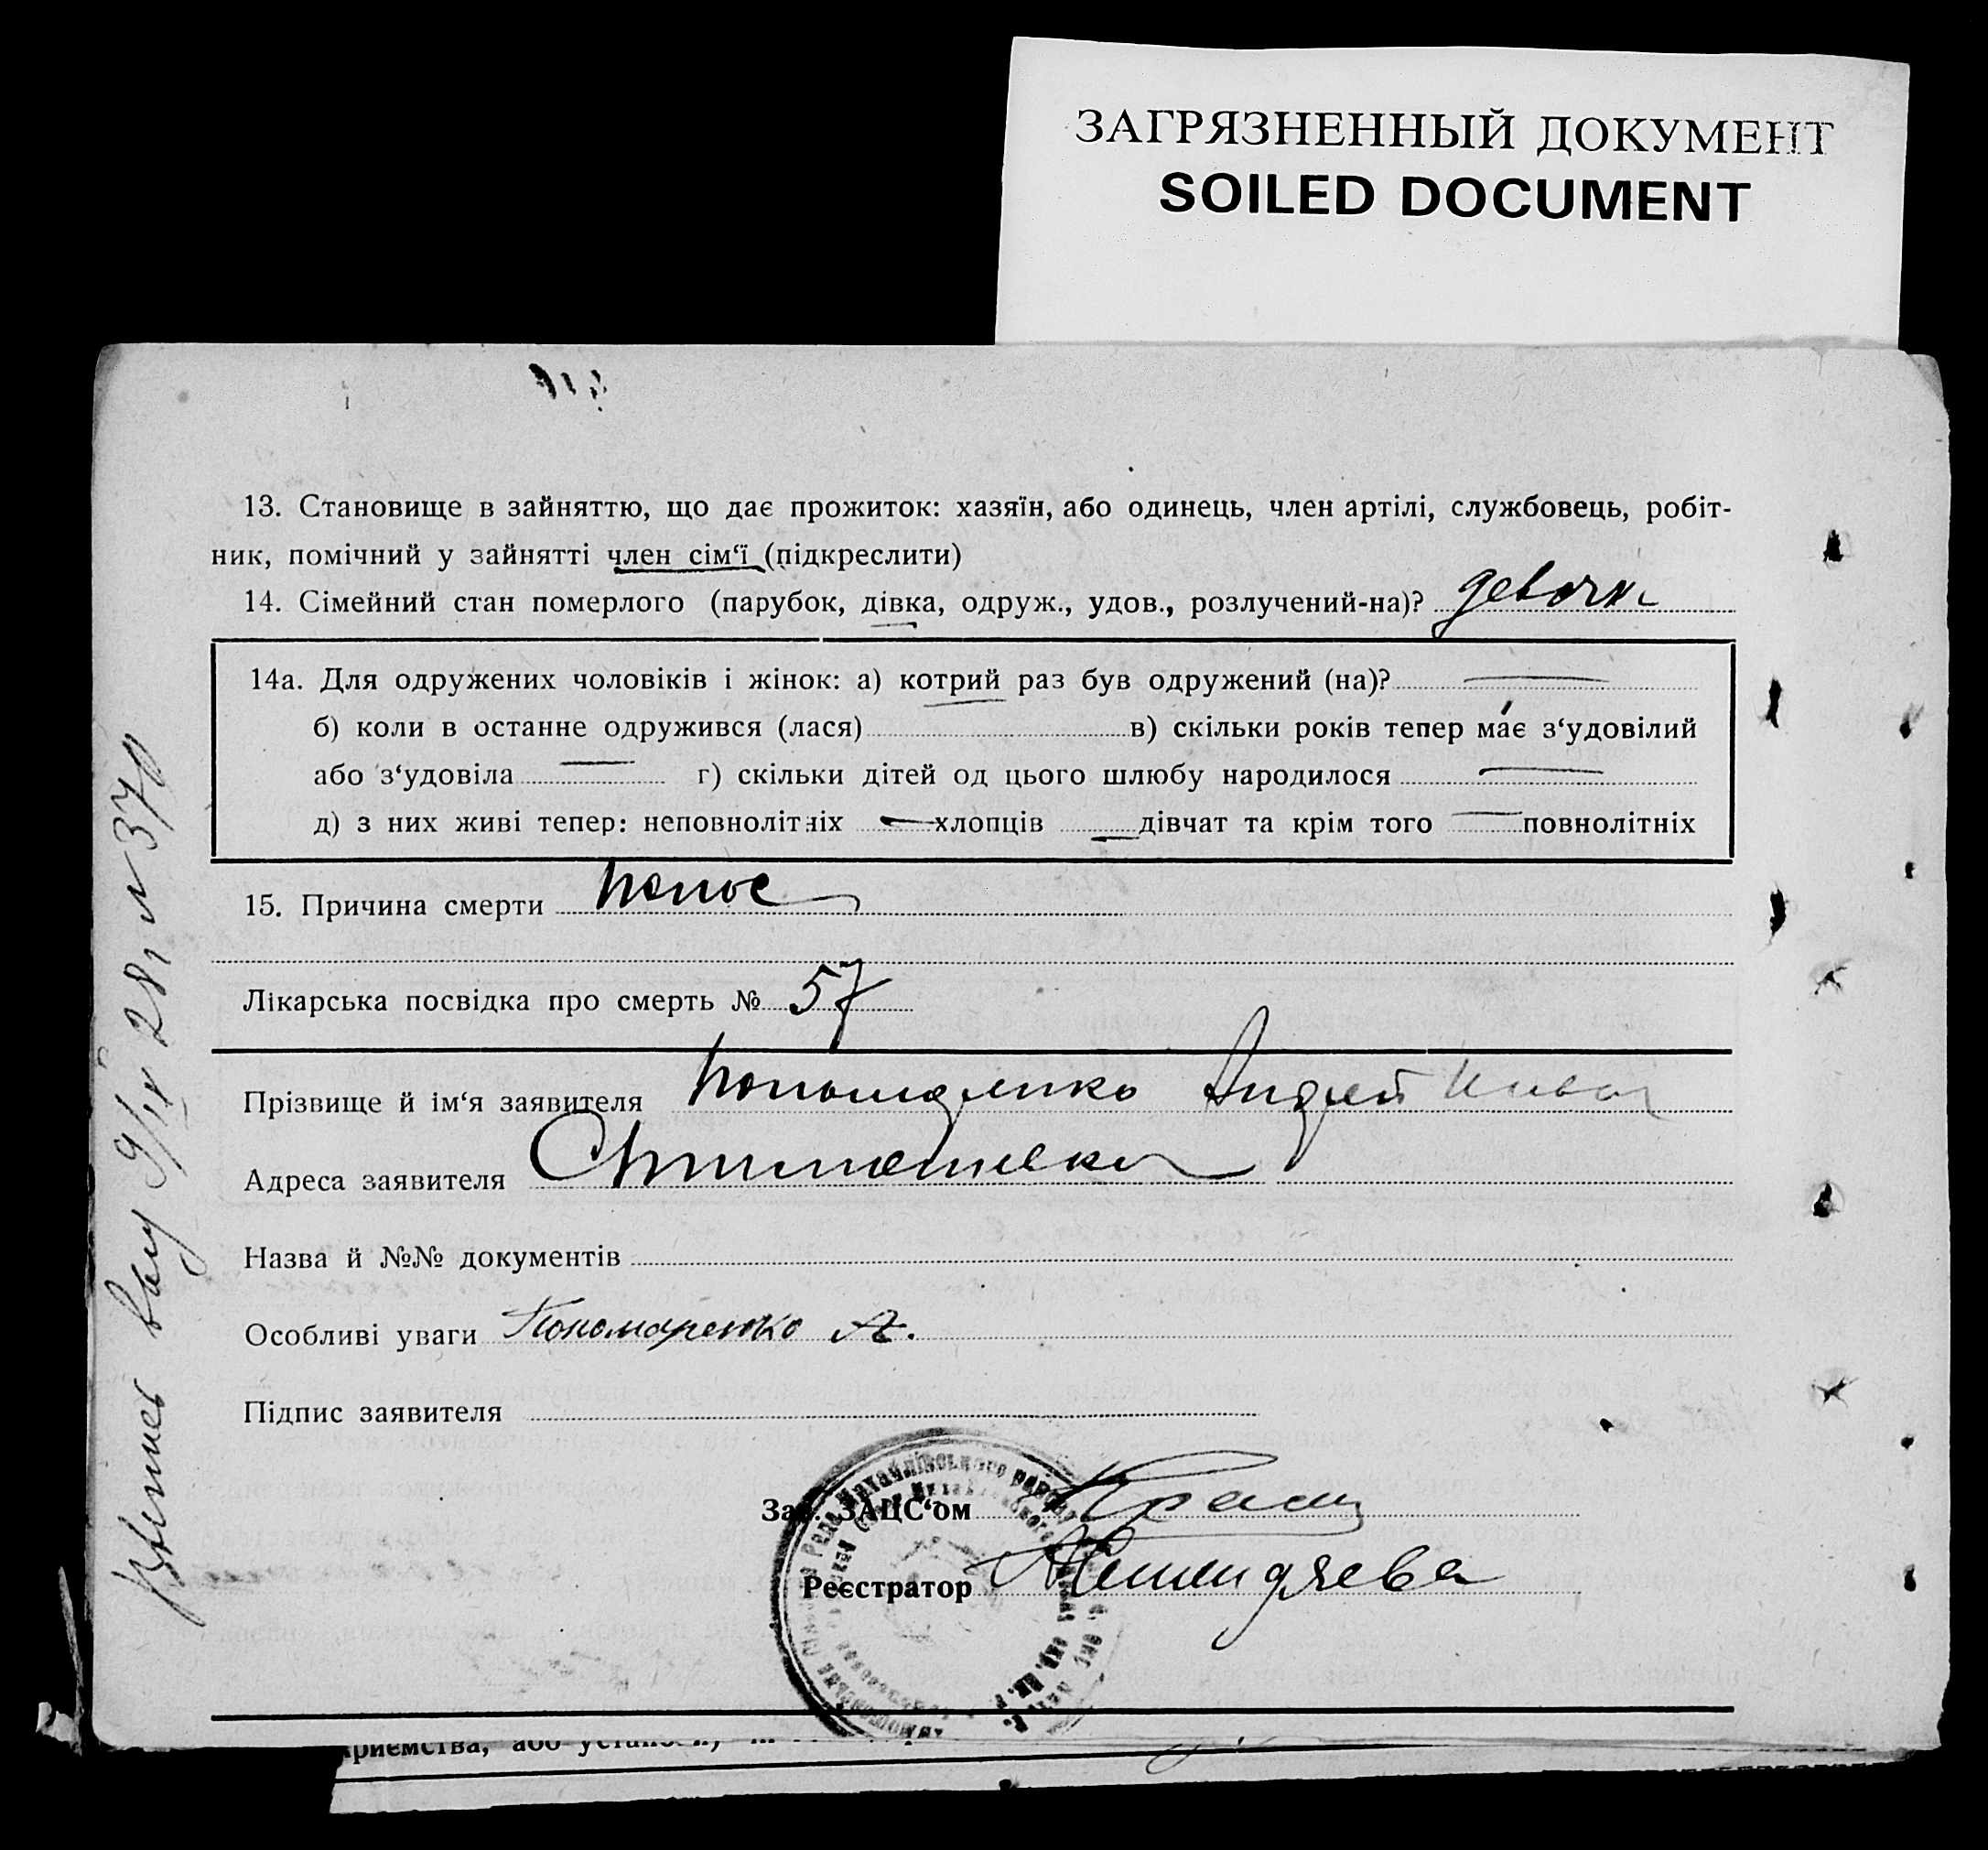 ЗАГРЯЗНЕННЫЙ ДОКУМЕНТ
SOILED DOCUMENT
13. Становище в зайняттю, що дає прожиток: хазяїн, або одинець, член артілі, службовець, робіт-
ник, помічний у зайнятті член сім‘ї (підкреслити)
14. Сімейний стан померлого (парубок, дівка, одруж., удов., розлучений-на)? девочка
14а. Для одружених чоловіків і жінок: а) котрий раз був одружений (на)?
б) коли в останне одружився (лася) в) скільки років тепер має з‘удовілий
або з‘удовіла г) скільки дітей од цього шлюбу народилося
д) з них живі тепер: неповнолітніх хлопців дівчат та крім того повнолітніх
15. Причина смерти понос
Лікарська посвідка про смерть № 57
Прізвище й ім‘я заявителя Пономаренко Андрей
Адреса заявителя Тимошевка
Назва й №№ документів
Особливі уваги Пономаренко А.
Підпис заявителя
Зав. ЗАЦС‘ом
Реєстратор
Михайлівського району
9/IX 28 г N 370
приємства, або